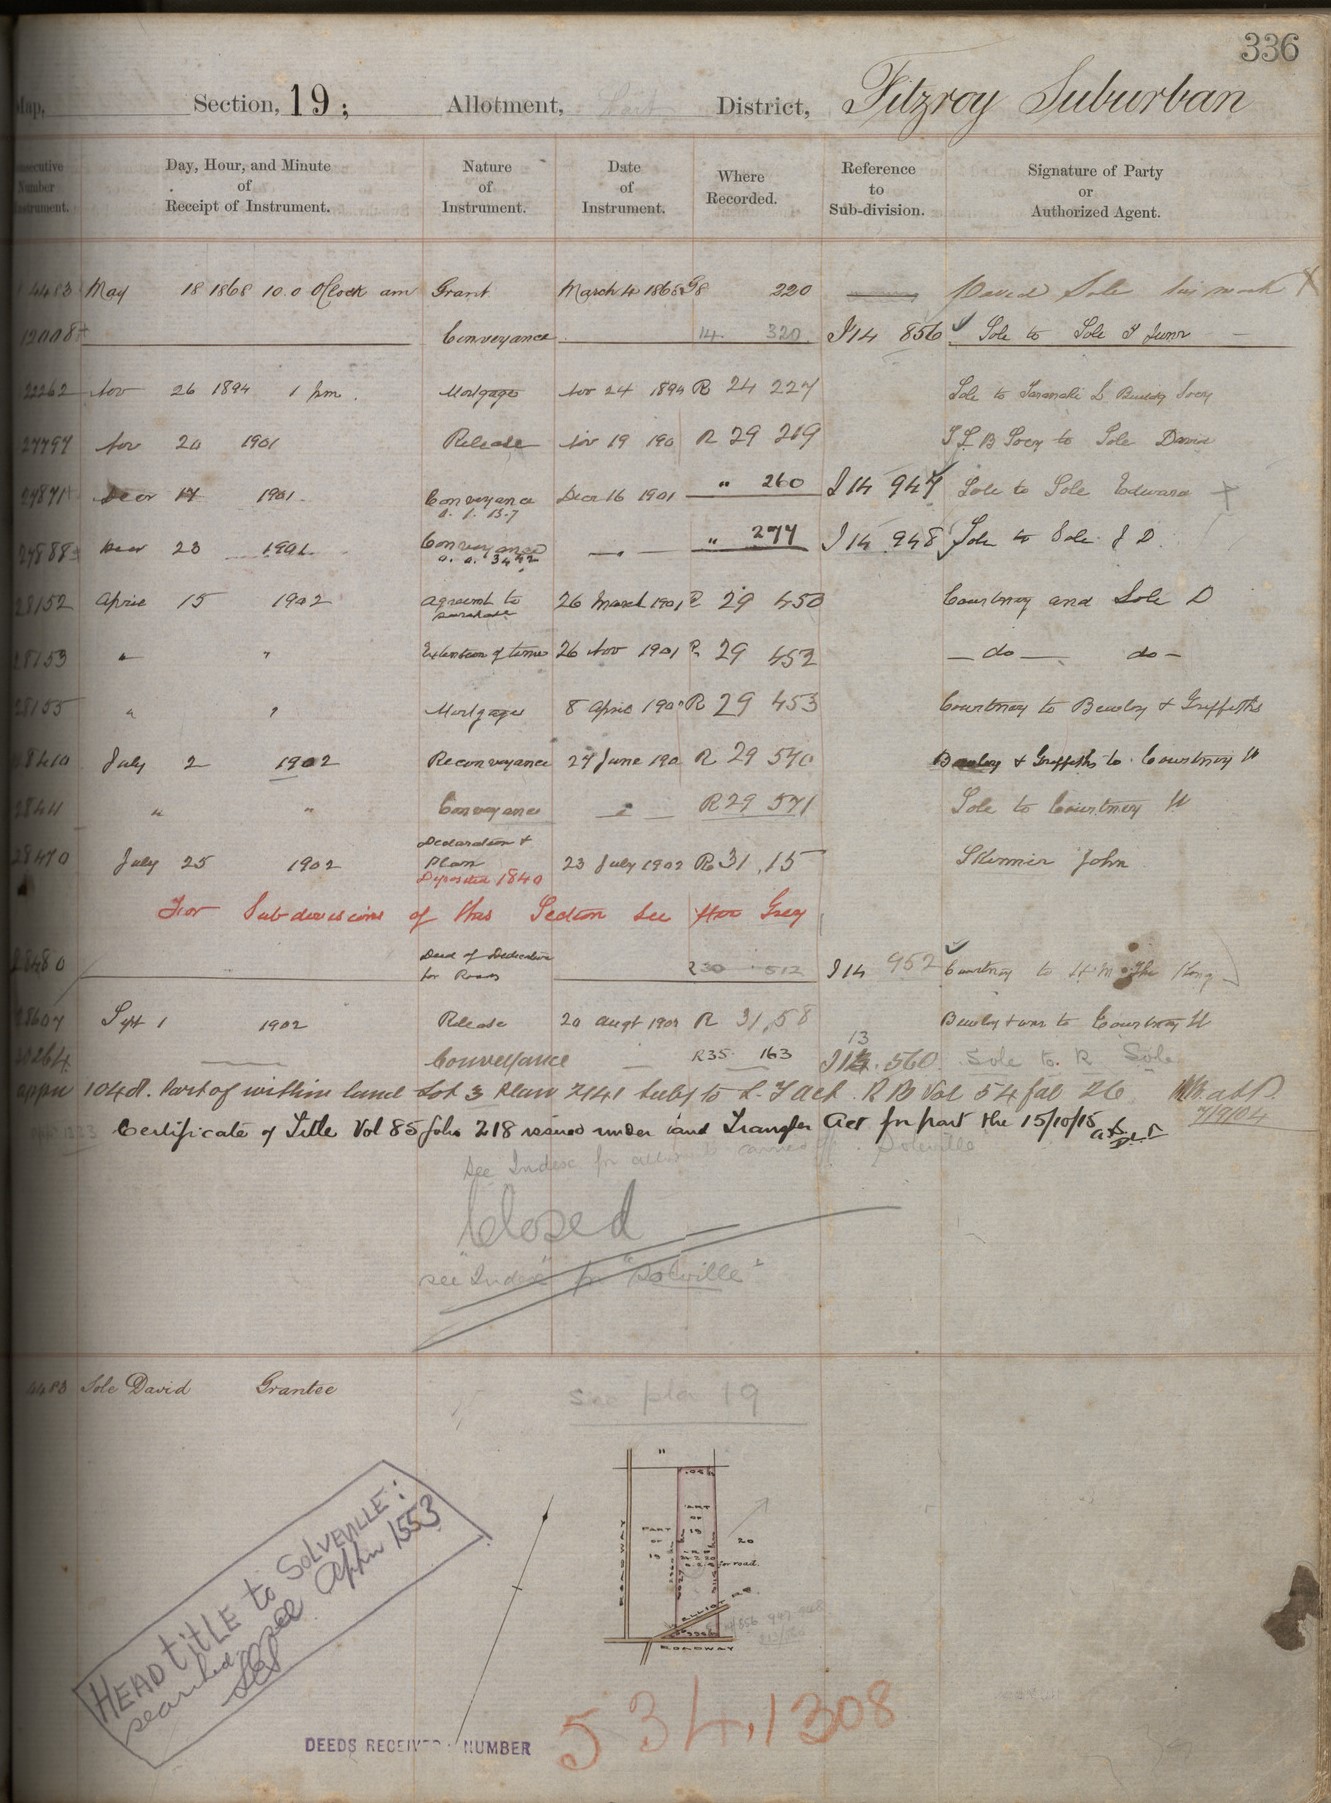 336
Map, Section, 19; Allotment, Part District, Fitzroy Suburban
Consecutive Number Instrument. Day, Hour, and Minute of Receipt of Instrument. Nature of Instrument. Date of Instrument. Where Recorded. Reference to Sub-division. Signature of Party or Authorized Agent.
4483 May 18 1868 10.0 O'Clock am Grant March 4 1865 G8 220 David Sole his mark X
12008 Conveyance 14 320 I14 856 Sole to Sole T Junr
22262 Nov 26 1894 1 pm. Mortgage Nov 24 1894 R 24 227 Sole to Taranaki L Buildg Socy
27797 Nov 20 1901 Release Nov 19 190 R 29 219 T L B Socy to Sole David
27871 Decr 17 1901 Conveyance Decr 16 1901 " 260 I14 947 Sole to Sole Edward X
27888 Decr 23 1901 Conveyance " 277 I14 948 Sole to Sole J D.
28152 April 15 1902 Agreemt to purchase 26 March 1901 R 29 450 Courtney and Sole D
28153 " " Extention of time 26 Nov 1901 R 29 452 — do — do —
28155 " " Mortgage 8 April 190 R 29 453 Courtney to Bewley & Griffiths
28410 July 2 1902 Reconveyance 27 June 190 R 29 570 Bewley & Griffiths to Courtney W
28411 " " Conveyance " R 29 571 Sole to Courtney W
28470 July 25 1902 Declaration & Plan 23 July 1902 R 31, 15 Skinner John
Deposited 1840
For Subdivisions of this Section see Grey
28480 Deed of Dedication for Roads R30 512 I14 952 Courtney to H. M. The King
28607 Sept 1 1902 Release 20 Augt 1902 R 31, 58 Bewley & anr to Courtney W
Conveyance R35 163 I13. 560 Sole to R Sole
appn 1042. Part of within land Lot 3 Plan 2141 subj to L. T Act. R B Vol 54 fol 26 7/9/04
Certificate of Title Vol 85 folio 218 issued under Land Transfer Act for part the 15/10/15
see Index for allots carried off Solville
Closed
see "Index" for "Solville"
4483 Sole David Grantee
see plan 19
HEAD TITLE to SOLVEVILLE:
searched see Appn 1553
ROADWAY
PART OF 19
PART OF 19
20
for road.
ELLIOT RD.
ROADWAY
DEEDS RECEIVED NUMBER
534,1308